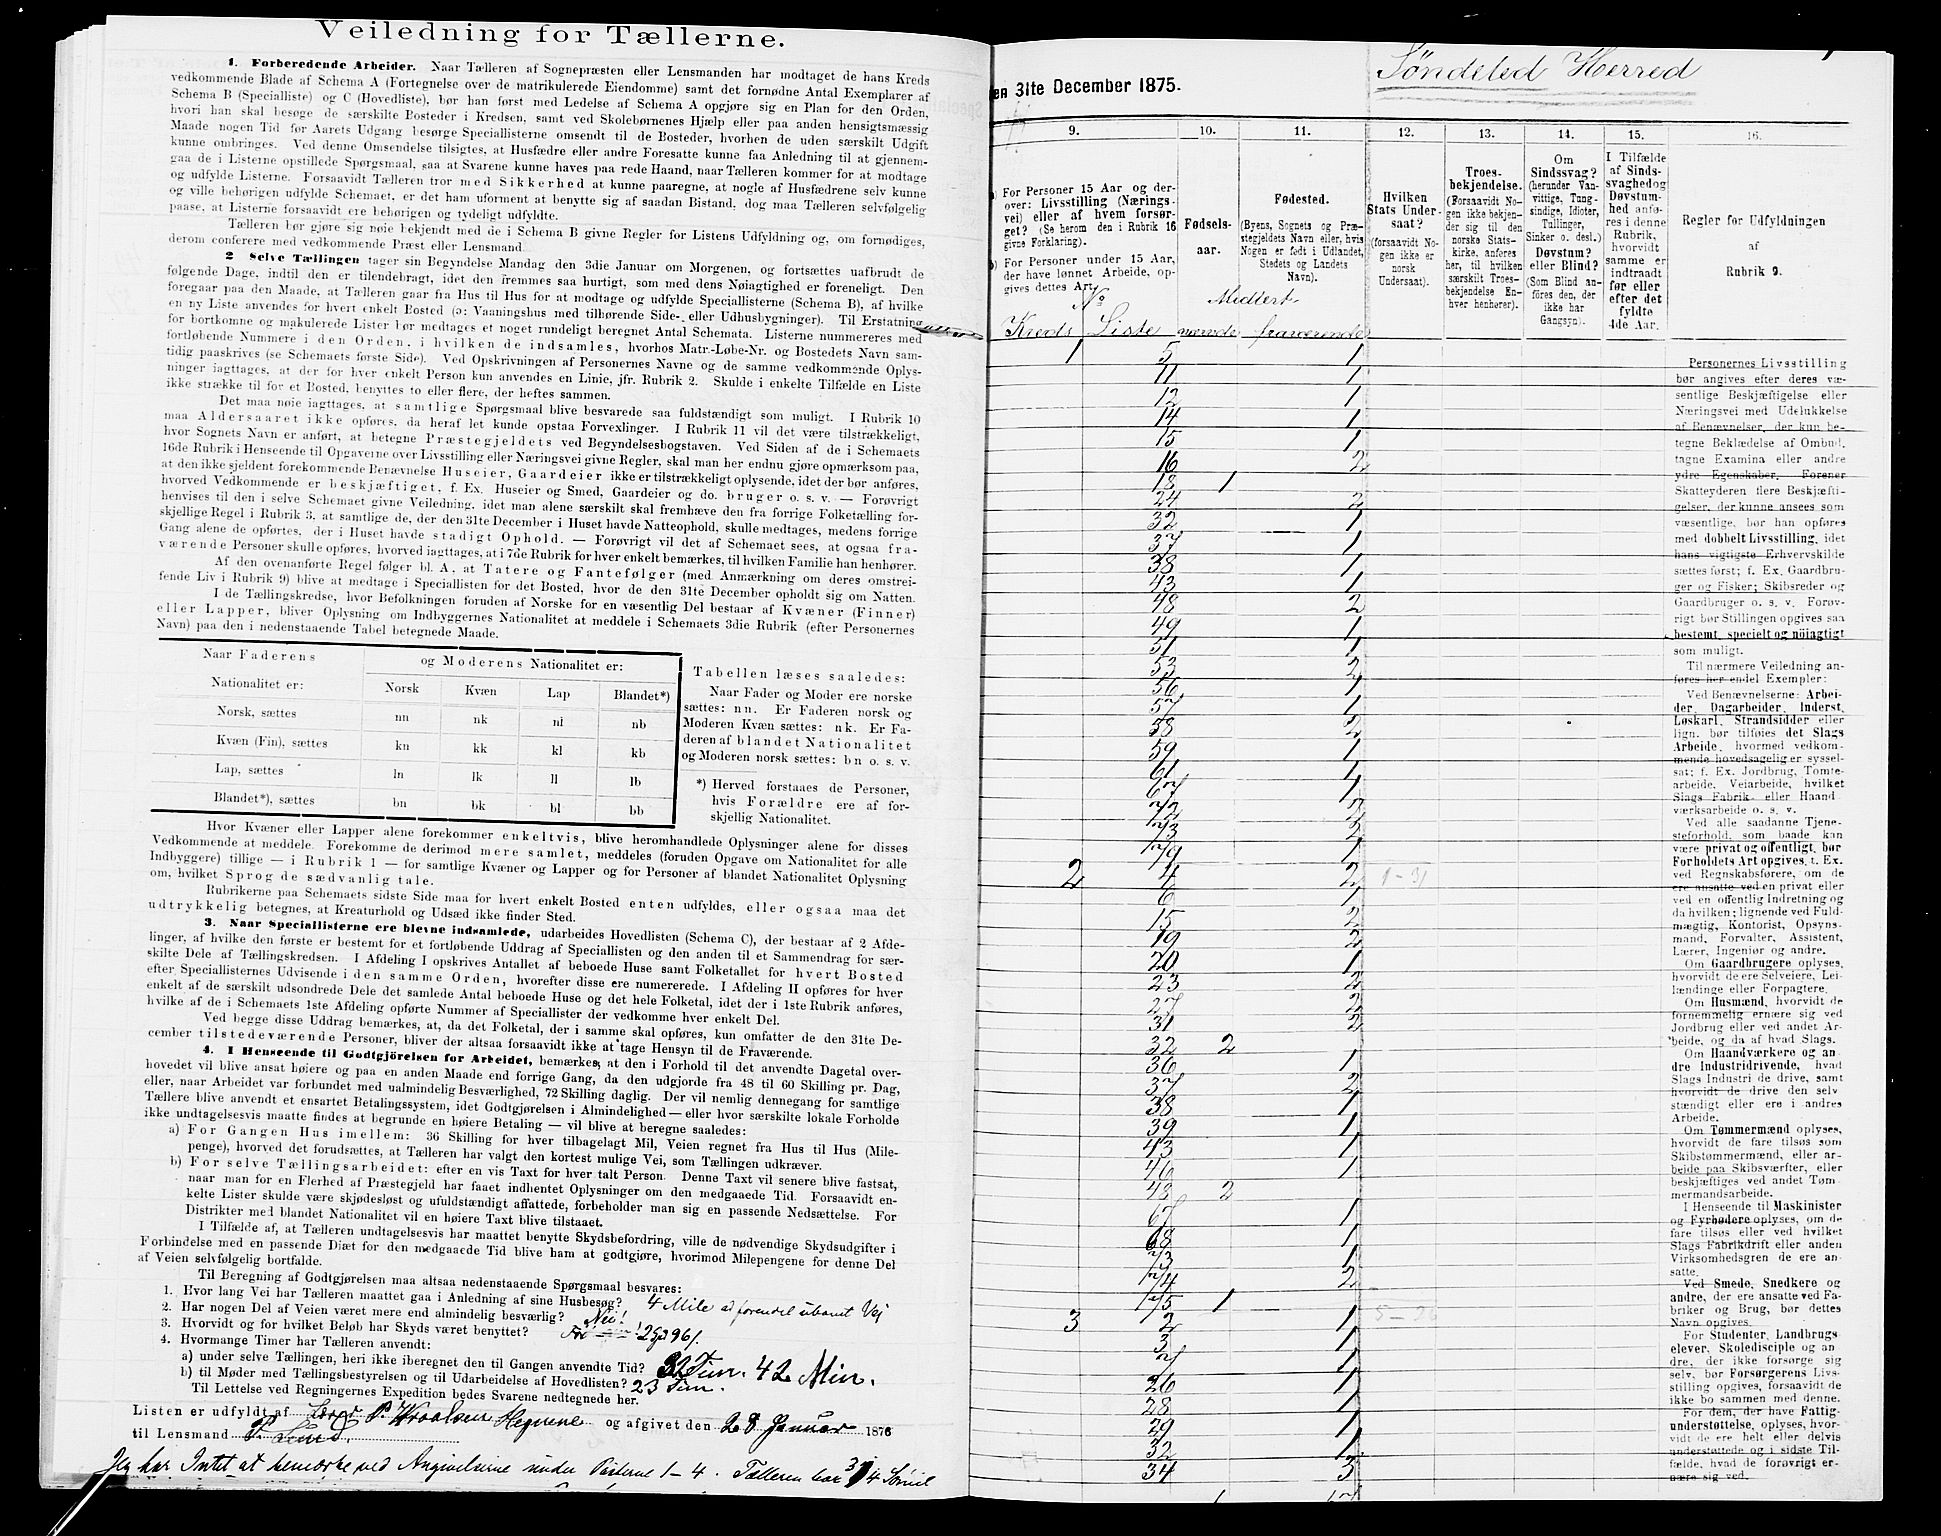 Veiledning for Tællerne.
1. Forberedende Arbeider. Naar Tælleren af Sognepræsten eller Lensmanden har modtaget de hans Kreds
vedkommende Blade af Schema A (Fortegnelse over de matrikulerede Eiendomme) samt det fornødne Antal Exemplarer af
Schema B (Specialliste) og C (Hovedliste), bør han først med Ledelse af Schema A opgjøre sig en Plan for den Orden,
hvori han skal besøge de særskilte Bosteder i Kredsen, samt ved Skolebørnenes Hjælp eller paa anden hensigtsmæssig
Maade nogen Tid før Aarets Udgang besørge Speciallisterne omsendt til de Bosteder, hvorhen de uden særskilt Udgift
kunne ombringes. Ved denne Omsendelse tilsigtes, at Husfædre eller andre Foresatte kunne faa Anledning til at gjennem-
gaa de i Listerne opstillede Spørgsmaal, saa at Svarene kunne haves paa rede Haand, naar Tælleren kommer for at modtage
og udfylde Listerne. Forsaavidt Tælleren tror med Sikkerhed at kunne paaregne, at nogle af Husfædrene selv kunne
og ville behørigen udfylde Schemaet, er det ham uforment at benytte sig af saadan Bistand, dog maa Tælleren selvfølgelig
paase, at Listerne forsaavidt ere behørigen og tydeligt udfyldte.
Tælleren bør gjøre sig nøie bekjendt med de i Schema B givne Regler for Listens Udfyldning og, om fornødiges,
derom conferere med vedkommende Præst eller Lensmand.
2 Selve Tællingen tager sin Begyndelse Mandag den 3die Januar om Morgenen, og fortsættes uafbrudt de
følgende Dage, indtil den er tilendebragt, idet den fremmes saa hurtigt, som med dens Nøiagtighed er foreneligt. Den
foregaar paa den Maade, at Tælleren gaar fra Hus til Hus for at modtage og udfylde Speciallisterne (Schema B), af hvilke
en ny Liste anvendes for hvert enkelt Bosted (ɔ: Vaaningshus med tilhørende Side- eller Udhusbygninger). Til Erstatning
for bortkomne og makulerede Lister bør medtages et noget rundeligt beregnet Antal Schemata. Listerne nummereres med
fortløbende Nummere i den Orden, i hvilken de indsamles, hvorhos Matr.-Løbe-Nr. og Bostedets Navn sam-
tidig paaskrives (se Schemaets første Side). Ved Opskrivningen af Personernes Navne og de samme vedkommende Oplys-
ninger iagttages, at der for hver enkelt Person kun anvendes en Linie, jfr. Rubrik 2. Skulde i enkelte Tilfælde en Liste
ikke strække til for et Bosted, benyttes to eller flere, der heftes sammen.
Det maa nøie iagttages, at samtlige Spørgsmaal blive besvarede saa fuldstændigt som muligt. I Rubrik 10
maa Aldersaaret ikke opføres, da heraf let kunde opstaa Forvexlinger. I Rubrik 11 vil det være tilstrækkeligt,
hvor Sognets Navn er anført, at betegne Præstegjeldets ved Begyndelsesbogstaven. Ved Siden af de i Schemaets
16de Rubrik i Henseende til Opgaverne over Livsstilling eller Næringsvei givne Regler, skal man her endnu gjøre opmærksom paa,
at den ikke sjeldent forekommende Benævnelse Huseier, Gaardeier ikke er tilstrækkeligt oplysende, idet der bør anføres,
hvorved Vedkommende er beskjæftiget, f. Ex. Huseier og Smed, Gaardeier og do. bruger o. s. v. — Forøvrigt
henvises til den i selve Schemaet givne Veiledning, idet man alene særskilt skal fremhæve den fra forrige Folketælling for-
skjellige Regel i Rubrik 3, at samtlige de, der den 31te December i Huset havde Natteophold, skulle medtages, medens forrige
Gang alene de opførtes, der i Huset havde stadigt Ophold. — Forøvrigt vil det af Schemaet sees, at ogsaa fra-
værende Personer skulle opføres, hvorved iagttages, at i 7de Rubrik for hver enkelt bemærkes, til hvilken Familie han henhører.
Af den ovenanførte Regel følger bl. A. at Tatere og Fantefølger (med Anmærkning om deres omstrei-
fende Liv i Rubrik 9) blive at medtage i Speciallisten for det Bosted, hvor de den 31te December opholdt sig om Natten.
I de Tællingskredse, hvor Befolkningen foruden af Norske for en væsentlig Del bestaar af Kvæner (Finner)
eller Lapper, bliver Oplysning om Indbyggernes Nationalitet at meddele i Schemaets 3die Rubrik (efter Personernes
Navn) paa den i nedenstaaende Tabel betegnede Maade.
Naar Faderens og Moderens Nationalitet er:
Nationalitet er: Norsk Kvæn Lap Blandet*)
Norsk, sættes nn nk nl nb
Kvæn (Fin), sættes kn kk kl kb
Lap, sættes ln lk ll lb
Blandet*), sættes bn bk bl bb
Tabellen læses saaledes:
Naar Fader og Moder ere norske
sættes: nn. Er Faderen norsk og
Moderen Kvæn sættes: nk. Er Fa-
deren af blandet Nationalitet
og Moderen norsk sættes: bn o. s. v.
*) Herved forstaaes de Personer,
hvis Forældre ere af for-
skjellig Nationalitet.
Hvor Kvæner eller Lapper alene forekommer enkeltvis, blive heromhandlede Oplysninger alene for disses
Vedkommende at meddele. Forekomme de derimod mere samlet, meddeles (foruden Opgave om Nationalitet for alle
Indbyggere) tillige — i Rubrik 1 — for samtlige Kvæner og Lapper og for Personer af blandet Nationalitet Oplysning
om, hvilket Sprog de sædvanlig tale.
Rubrikerne paa Schemaets sidste Side maa for hvert enkelt Bosted enten udfyldes, eller ogsaa maa det
udtrykkelig betegnes, at Kreaturhold og Udsæd ikke finder Sted.
3. Naar Speciallisterne ere blevne indsamlede, udarbeides Hovedlisten (Schema C), der bestaar af 2 Afde-
linger, af hvilke den første er bestemt for et fortløbende Uddrag af Speciallisten og den anden til et Sammendrag for sær-
skilte Dele af Tællingskredsen. I Afdeling I opskrives Antallet af beboede Huse samt Folketallet for hvert Bosted
efter Speciallisternes Udvisende i den samme Orden, hvorefter disse ere numererede. I Afdeling II opføres for hver
enkelt af de særskilt udsondrede Dele det samlede Antal beboede Huse og det hele Folketal, idet der i 1ste Rubrik anføres,
hvilke af de i Schemaets 1ste Afdeling opførte Nummer af Speciallister der vedkomme hver enkelt Del.
Ved begge disse Uddrag bemærkes, at, da det Folketal, der i samme skal opføres, kun omfatter de den 31te De-
cember tilstedeværende Personer, bliver der altsaa forsaavidt ikke at tage Hensyn til de Fraværende.
4. I Henseende til Godtgjörelsen for Arbeidet, bemærkes, at den i Forhold til det anvendte Dagetal over-
hovedet vil blive ansat høiere og paa en anden Maade end forrige Gang, da den udgjorde fra 48 til 60 Skilling pr. Dag,
eller, naar Arbeidet var forbundet med ualmindelig Besværlighed, 72 Skilling daglig. Der vil nemlig dennegang for samtlige
Tællere blive anvendt et ensartet Betalingssystem, idet Godtgjørelsen i Almindelighed — eller hvor særskilte lokale Forholde
ikke undtagelsesvis maatte findes at begrunde en høiere Betaling — vil blive at beregne saaledes:
a) For Gangen Hus imellem: 36 Skilling for hver tilbagelagt Mil, Veien regnet fra Hus til Hus (Mile-
penge), hvorved det forudsættes, at Tælleren har valgt den kortest mulige Vei, som Tællingen udkræver.
b) For selve Tællingsarbeidet: efter en vis Taxt for hver talt Person. Denne Taxt vil senere blive fastsat,
naar man for en Flerhed af Præstegjeld har faaet indhentet Oplysninger om den medgaaede Tid. Forsaavidt en-
kelte Lister skulde være skjødesløst og ufuldstændigt affattede, forbeholder man sig en passende Nedsættelse. For
Distrikter med blandet Nationalitet vil en høiere Taxt blive tilstaaet.
I Tilfælde af, at Tælleren undtagelsesvis har maattet benytte Skydsbefordring, ville de nødvendige Skydsudgifter i
Forbindelse med en passende Diæt for den medgaaede Tid blive ham at godtgjøre, hvorimod Milepengene for denne Del
af Veien selvfølgelig bortfalde.
Til Beregning af Godtgjørelsen maa altsaa nedenstaaende Spørgsmaal besvares:
1. Hvor lang Vei har Tælleren maattet gaa i Anledning af sine Husbesøg? 4 Mile
2. Har nogen Del af Veien været mere end almindelig besværlig? Nei!
3. Hvorvidt og for hvilket Beløb har Skyds været benyttet?
4. Hvormange Timer har Tælleren anvendt:
a) under selve Tællingen, heri ikke iberegnet den til Gangen anvendte Tid? 32 Tim. 42 Min.
b) til Møder med Tællingsbestyrelsen og til Udarbeidelse af Hovedlisten? 23 Tim.
Til Lettelse ved Regningernes Expedition bedes Svarene nedtegnede her.
Listen er udfyldt af Lærer P. og afgivet den 28 Januar 1876
til Lensmand P. Lund.
Jeg har Intet at bemærke ved Angivelserne under Posterne 1-4. Tælleren har
en 31te December 1875.
Søndeled Herred
9. 10. 11. 12. 13. 14. 15. 16.
a) For Personer 15 Aar og der-
over: Livsstilling (Nærings-
vei) eller af hvem forsør-
get? (Se herom den i Rubrik 16
givne Forklaring).
b) For Personer under 15 Aar,
der have lønnet Arbeide, op-
gives dettes Art.
Fødsels-
aar.
Fødested.
(Byens, Sognets og Præ-
stegjeldets Navn eller, hvis
Nogen er født i Udlandet,
Stedets og Landets
Navn).
Hvilken
Stats Under-
saat?
(forsaavidt No-
gen ikke er
norsk
Undersaat).
Troes-
bekjendelse.
(Forsaavidt No-
gen ikke bekjen-
der sig til den
norske Stats-
kirke, anføres
her, til hvilken
særskilt Troes-
bekjendelse En-
hver henhører).
Om
Sindssvag?
(herunder Van-
vittige, Tung-
sindige, Idioter,
Tullinger,
Sinker o. desl.)
Døvstum?
eller Blind?
(Som Blind an-
føres den, der
ikke har
Gangsyn).
I Tilfælde
af Sinds-
svaghed og
Døvstum-
hed anfø-
res i denne
Rubrik,
hvorvidt
samme er
indtraadt
før eller
efter det
fyldte
4de Aar.
Regler for Udfyldningen
af
Rubrik 9.
No Midlert.
Kreds Liste nærende fraværende
1 5 1
11 1
12 1
14 1
15 1
16 2
18 1
24 2
32 1
37 1
38 1
43 1
48 2
49 1
51 1
53 2
56 1
57 1
58 2
59 1
61 1
67 1
72 2
73 2
79 1
2 4 2 1-31
6 1
15 2
19 2
20 1
23 2
27 2
31 2
32 2
36 1
37 2
38 1
39 1
43 1
46 1
48 2
67 1
68 1
73 1
74 2
75 1
3 2 1 5-36
3 1
7 1
26 1
28 1
29 1
32 1
34 3
Personernes Livsstilling
bør angives efter deres væ-
sentlige Beskjæftigelse eller
Næringsvei med Udelukkelse
af Benævnelser, der kun be-
tegne Beklædelse af Ombud,
tagne Examina eller andre
ydre Egenskaber. Forener
Skatteyderen flere Beskjæfti-
gelser, der kunne ansees som
væsentlige, bør han opføres
med dobbelt Livsstilling, idet
hans vigtigste Erhvervskilde
sættes først; f. Ex. Gaardbru-
ger og Fisker; Skibsreder og
Gaardbruger o. s. v. Forøv-
rigt bør Stillingen opgives saa
bestemt, specielt og nöiagtigt
som muligt.
Til nærmere Veiledning an-
føres her endel Exempler:
Ved Benævnelserne: Arbei-
der, Dagarbeider, Inderst,
Løskarl, Strandsidder eller
lign. bør tilføies det Slags
Arbeide, hvormed vedkom-
mende hovedsagelig er syssel-
sat; f. Ex. Jordbrug, Tomte-
arbeide, Veiarbeide, hvilket
Slags Fabrik- eller Haand-
værksarbeide o. s. v.
Ved alle saadanne Tjene-
steforhold, som baade kan
være privat og offentligt, bør
Forholdets Art opgives, t. Ex.
ved Regnskabsførere, om de
ere ansatte ved en privat eller
ved en offentlig Indretning og
da hvilken; lignende ved Fuld-
mægtig, Kontorist, Opsyns-
mand, Forvalter, Assistent,
Lærer, Ingeniør og andre.
Om Gaardbrugere oplyses,
hvorvidt de ere Selveiere, Lei-
lændinge eller Forpagtere.
Om Husmænd, hvorvidt de
fornemmelig ernære sig ved
Jordbrug eller ved andet Ar-
beide, og da af hvad Slags.
Om Haandværkere og an-
dre Industridrivende, hvad
Slags Industri de drive, samt
hvorvidt de drive den selv-
stændigt eller ere i andres
Arbeide.
Om Tømmermænd oplyses,
hvorvidt de fare tilsøs som
Skibstømmermænd, eller ar-
beide paa Skibsværfter, eller
beskjæftiges ved andet Tøm-
mermandsarbeide.
I Henseende til Maskinister
og Fyrbødere oplyses, om de
fare tilsøs eller ved hvilket
Slags Fabrikdrift eller anden
Virksomhedsgren de ere an-
satte.
Ved Smede, Snedkere og
andre, der ere ansatte ved Fa-
briker og Brug, bør dettes
Navn opgives.
For Studenter, Landbrugs-
elever, Skoledisciple og an-
dre, der ikke forsørge sig
selv, bør Forsørgerens Livs-
stilling opgives, forsaavidt de
ikke bo sammen med denne.
For dem, der have Fattig-
understøttelse, oplyses, hvor-
vidt de ere helt eller delvis
understøttede og i sidste Til-
fælde, hvad de forøvrigt er-
nære sig ved.